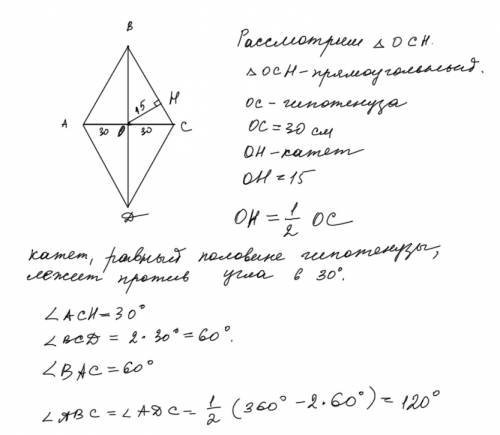 B
A
30
O
30
C
15
H
D
Рассмотрим △ OCH.
△OCH - прямоугольный.
OC - гипотенуза
OC = 30 см
OH - катет
OH = 15
OH = 1/2 OC
катет, равный половине гипотенузы,
лежит против угла в 30°.
∠ACH = 30°
∠BCD = 2 · 30° = 60°.
∠BAC = 60°
∠ABC = ∠ADC = 1/2 (360° - 2 · 60°) = 120°